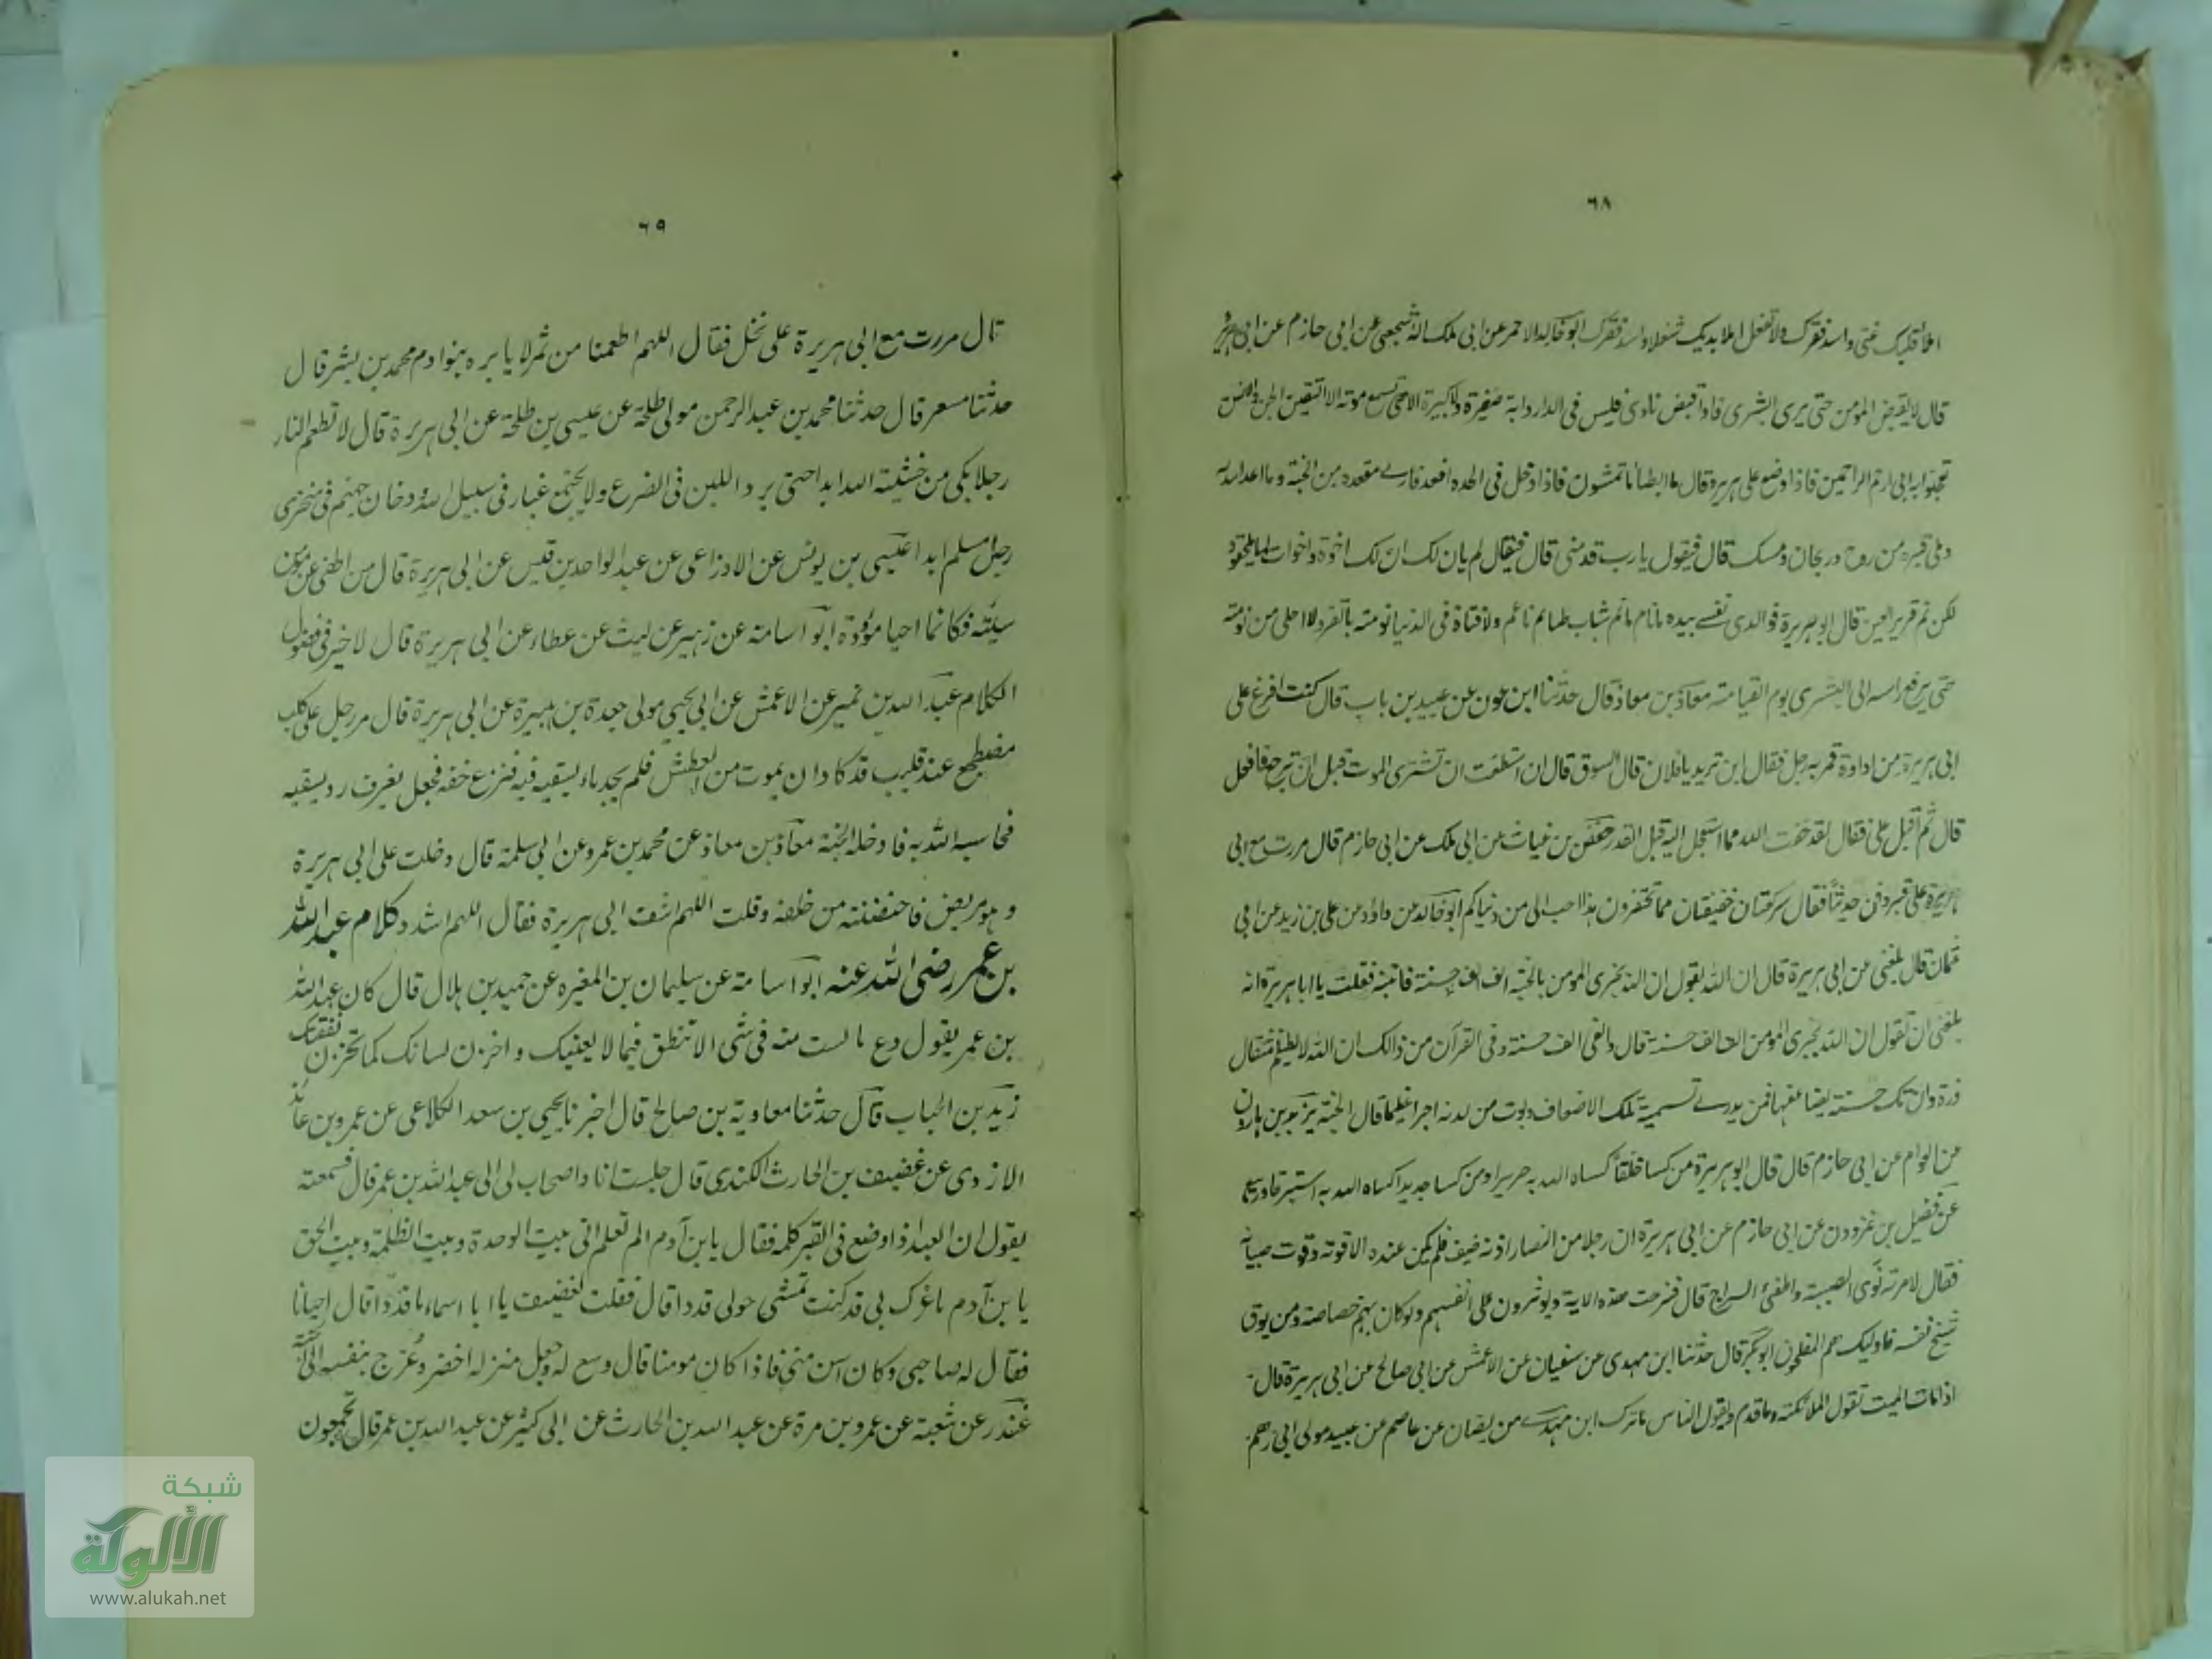 ٦٨
املأ قلبك غنى واسد فقرك ولا تفعل املأ بديك شغلا ولا اسد فقرك ابو خالد الاحمر عن ابى ملك الاشجعى عن ابى حازم عن ابى هريرة
قال لا يقبض المؤمن حتى يرى البشرى فاذا قبض نادى فليس فى الدار دابة صغيرة ولا كبيرة الا هى تسمع صوته الا الثقلين الجن والانس
تعجلوا به ابى ارحم الراحمين فاذا وضع على سريره قال ما ابطأ ما تمشون فاذا ادخل فى لحده اقعد فارى مقعده من الجنة وما اعد الله له
وملى قبره من روح وريحان ومسك قال فيقول يا رب قدمنى قال فيقال لم يان لك ان لك اخوة واخوات لما يلحقوا
لكن نم قرير العين قال ابو هريرة فوالذى نفسى بيده ما نام نائم شاب طاعم ناعم ولا فتاة فى الدنيا نومة باقصر ولا احلى من نومته
حتى يرفع راسه الى البشرى يوم القيامة معاذ بن معاذ قال حدثنا ابن عون عن عبيد بن باب قال كنت افرغ على
ابى هريرة من اداوة فمر به رجل فقال اين تريد يا فلان قال السوق قال ان استطعت ان تشترى الموت قبل ان ترجع فافعل
قال ثم اقبل على فقال لقد خفت الله مما استعجل اليه قبل القدر حفص بن غياث عن ابى ملك عن ابى حازم قال مررت مع ابى
هريرة على قبر دفن حديثا فقال ركعتان خفيفتان مما تحتقرون هذا احب الى من دنياكم ابو خالد عن داؤد عن على بن زيد عن ابى
عثمان قال بلغنى عن ابى هريرة قال ان الله يقول ان الله يجزى المومن بالحسنة الف الف حسنة فاتيته فقلت يا ابا هريرة انه
بلغنى ان تقول ان الله يجزى المومن الف الف حسنة قال والفى الف حسنة وفى القرآن من ذالك ان الله لا يظلم مثقال
ذرة وان تك حسنة يضاعفها فمن يدرى تسمية تلك الاضعاف ويوت من لدنه اجرا عظيما قال الجنة يزيد بن هارون
عن العوام عن ابى حازم قال قال ابو هريرة من كسا خلقا كساه الله به حريرا ومن كسا جديدا كساه الله به استبرقا وكيع
عن فضيل بن غزوان عن ابى حازم عن ابى هريرة ان رجلا من الانصار اذ نه ضيف فلم يكن عنده الا قوته وقوت صبيانه
فقال لامرته نومى الصبية واطفئ السراج قال فنزلت هذه الاية ويوثرون على انفسهم ولوكان بهم خصاصة ومن يوق
شح نفسه فاوليك هم المفلحون ابو بكر قال حدثنا ابن مهدى عن سفيان عن الاعمش عن ابى صالح عن ابى هريرة قال
اذا مات الميت تقول الملائكة وما قدم ويقول الناس ما ترك ابن مهدى عن سفيان عن عاصم عن عبيد مولى ابى رهم
٦٩
قال مررت مع ابى هريرة على نخل فقال اللهم اطعمنا من ثمر لا يابره بنوا دم محمد بن بشر قال
حدثنا مسعر قال حدثنا محمد بن عبد الرحمن مولى طلحة عن عيسى بن طلحة عن ابى هريرة قال لا تطعم النار
رجلا بكى من خشية الله ابدا حتى يرد اللبن فى الضرع ولا يجتمع غبار فى سبيل الله ودخان جهنم فى منخرى
رجل مسلم ابدا عيسى بن يونس عن الاوزاعى عن عبد الواحد بن قيس عن ابى هريرة قال من اطفى عن مومن
سيئة فكانما احيا مؤودة ابو اسامة عن زهير عن ليث عن عطاء عن ابى هريرة قال لا خير فى فضول
الكلام عبد الله بن نمير عن الاعمش عن ابى يحيى مولى جعدة بن هبيرة عن ابى هريرة قال مر رجل على كلب
مضطجع عند قليب قد كادان يموت من العطش فلم يجد ماء يسقيه فيه فنزع خفه فجعل يغرف ر ديسقيه
فحاسبه الله به فادخله الجنة معاذ بن معاذ عن محمد بن عمرو عن ابى سلمة قال دخلت على ابى هريرة
وهو مريض فاحتضنته من خلفه وقلت اللهم اشف ابى هريرة فقال اللهم اشدد كلام عبد الله
بن عمر رضى الله عنه ابو اسامة عن سليمان بن المغيره عن حميد بن هلال قال كان عبد الله
بن عمر يقول دع ما لست منه فى شى الا تنطق فيما لا يعنيك واخزن لسانك كما تخزن نفقتك
زيد بن الحباب قال حدثنا معاوية بن صالح قال اخبرنا يحيى بن سعد الكلاعى عن عمرو بن عائذ
الازدى عن غضيف بن الحارث الكندى قال جلست انا واصحاب لى الى عبد الله بن عمر قال فسمعته
يقول ان العبد اذا وضع فى القبر كلمه فقال يا بن آدم الم تعلم انى بيت الوحدة وبيت الظلمة وبيت الحق
يا بن آدم ما غرك بى قد كنت تمشى حولى قددا قال فقلت لغضيف يا ابا اسماء ما قددا قال احيانا
فقال له صاحبى وكان اسن منى فاذا كان مومنا قال وسع له وجعل منزله اخضر وعرج بنفسه الى الجنة
غندر عن شعبة عن عمرو بن مرة عن عبد الله بن الحارث عن ابى كثير عن عبد الله بن عمر قال تجمعون
شبكة
الألوكة
www.alukah.net